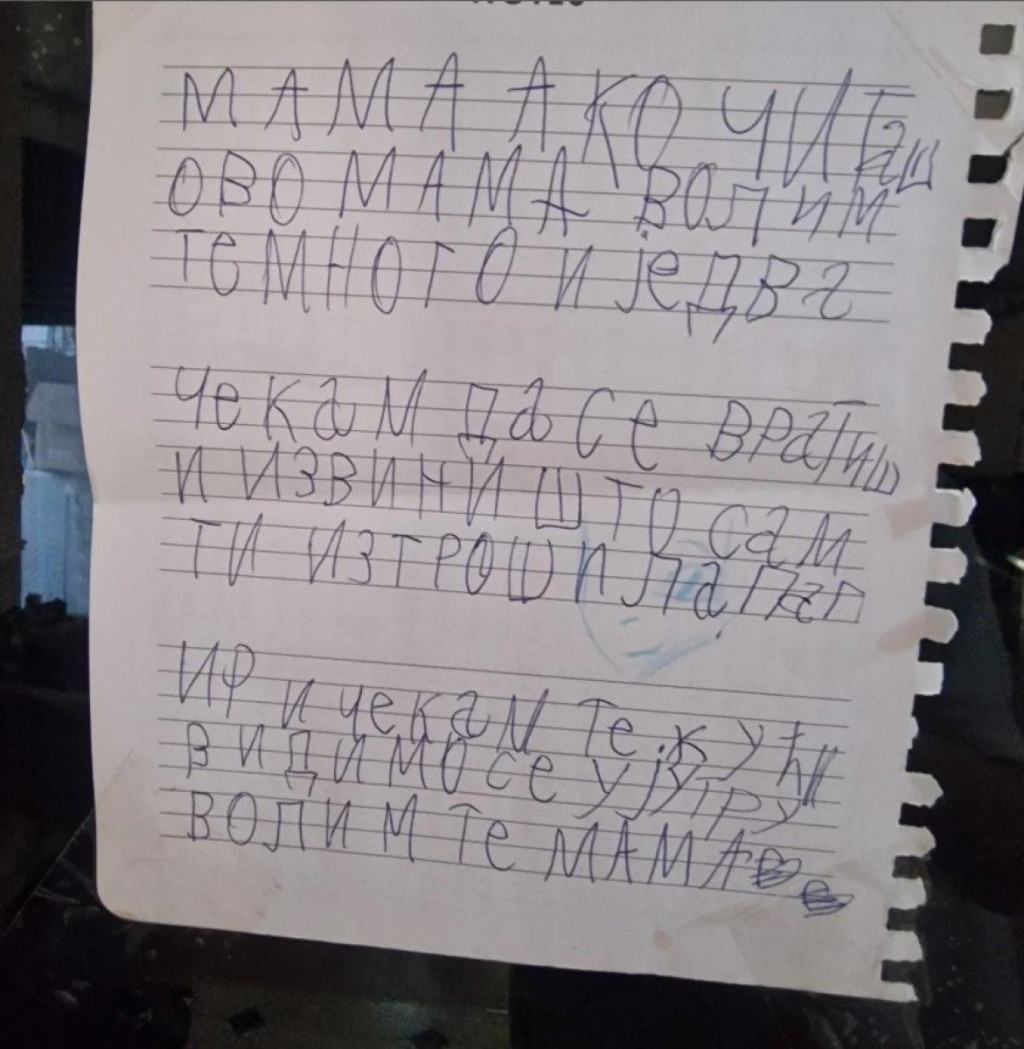 МАМА АКО ЧИТаш
ОВО МАМА ВОЛИМ
ТеМНОГО И јеДВа
ЧекаМ Да Се ВРаТиш
И ИЗВИНИ ШТО СаМ
ТИ ИЗТРОШИЛа ПаП
ИР И чекаМ Те кУћи
ВИДИМО се УјУТРУ
ВОЛИМ Те МАМА